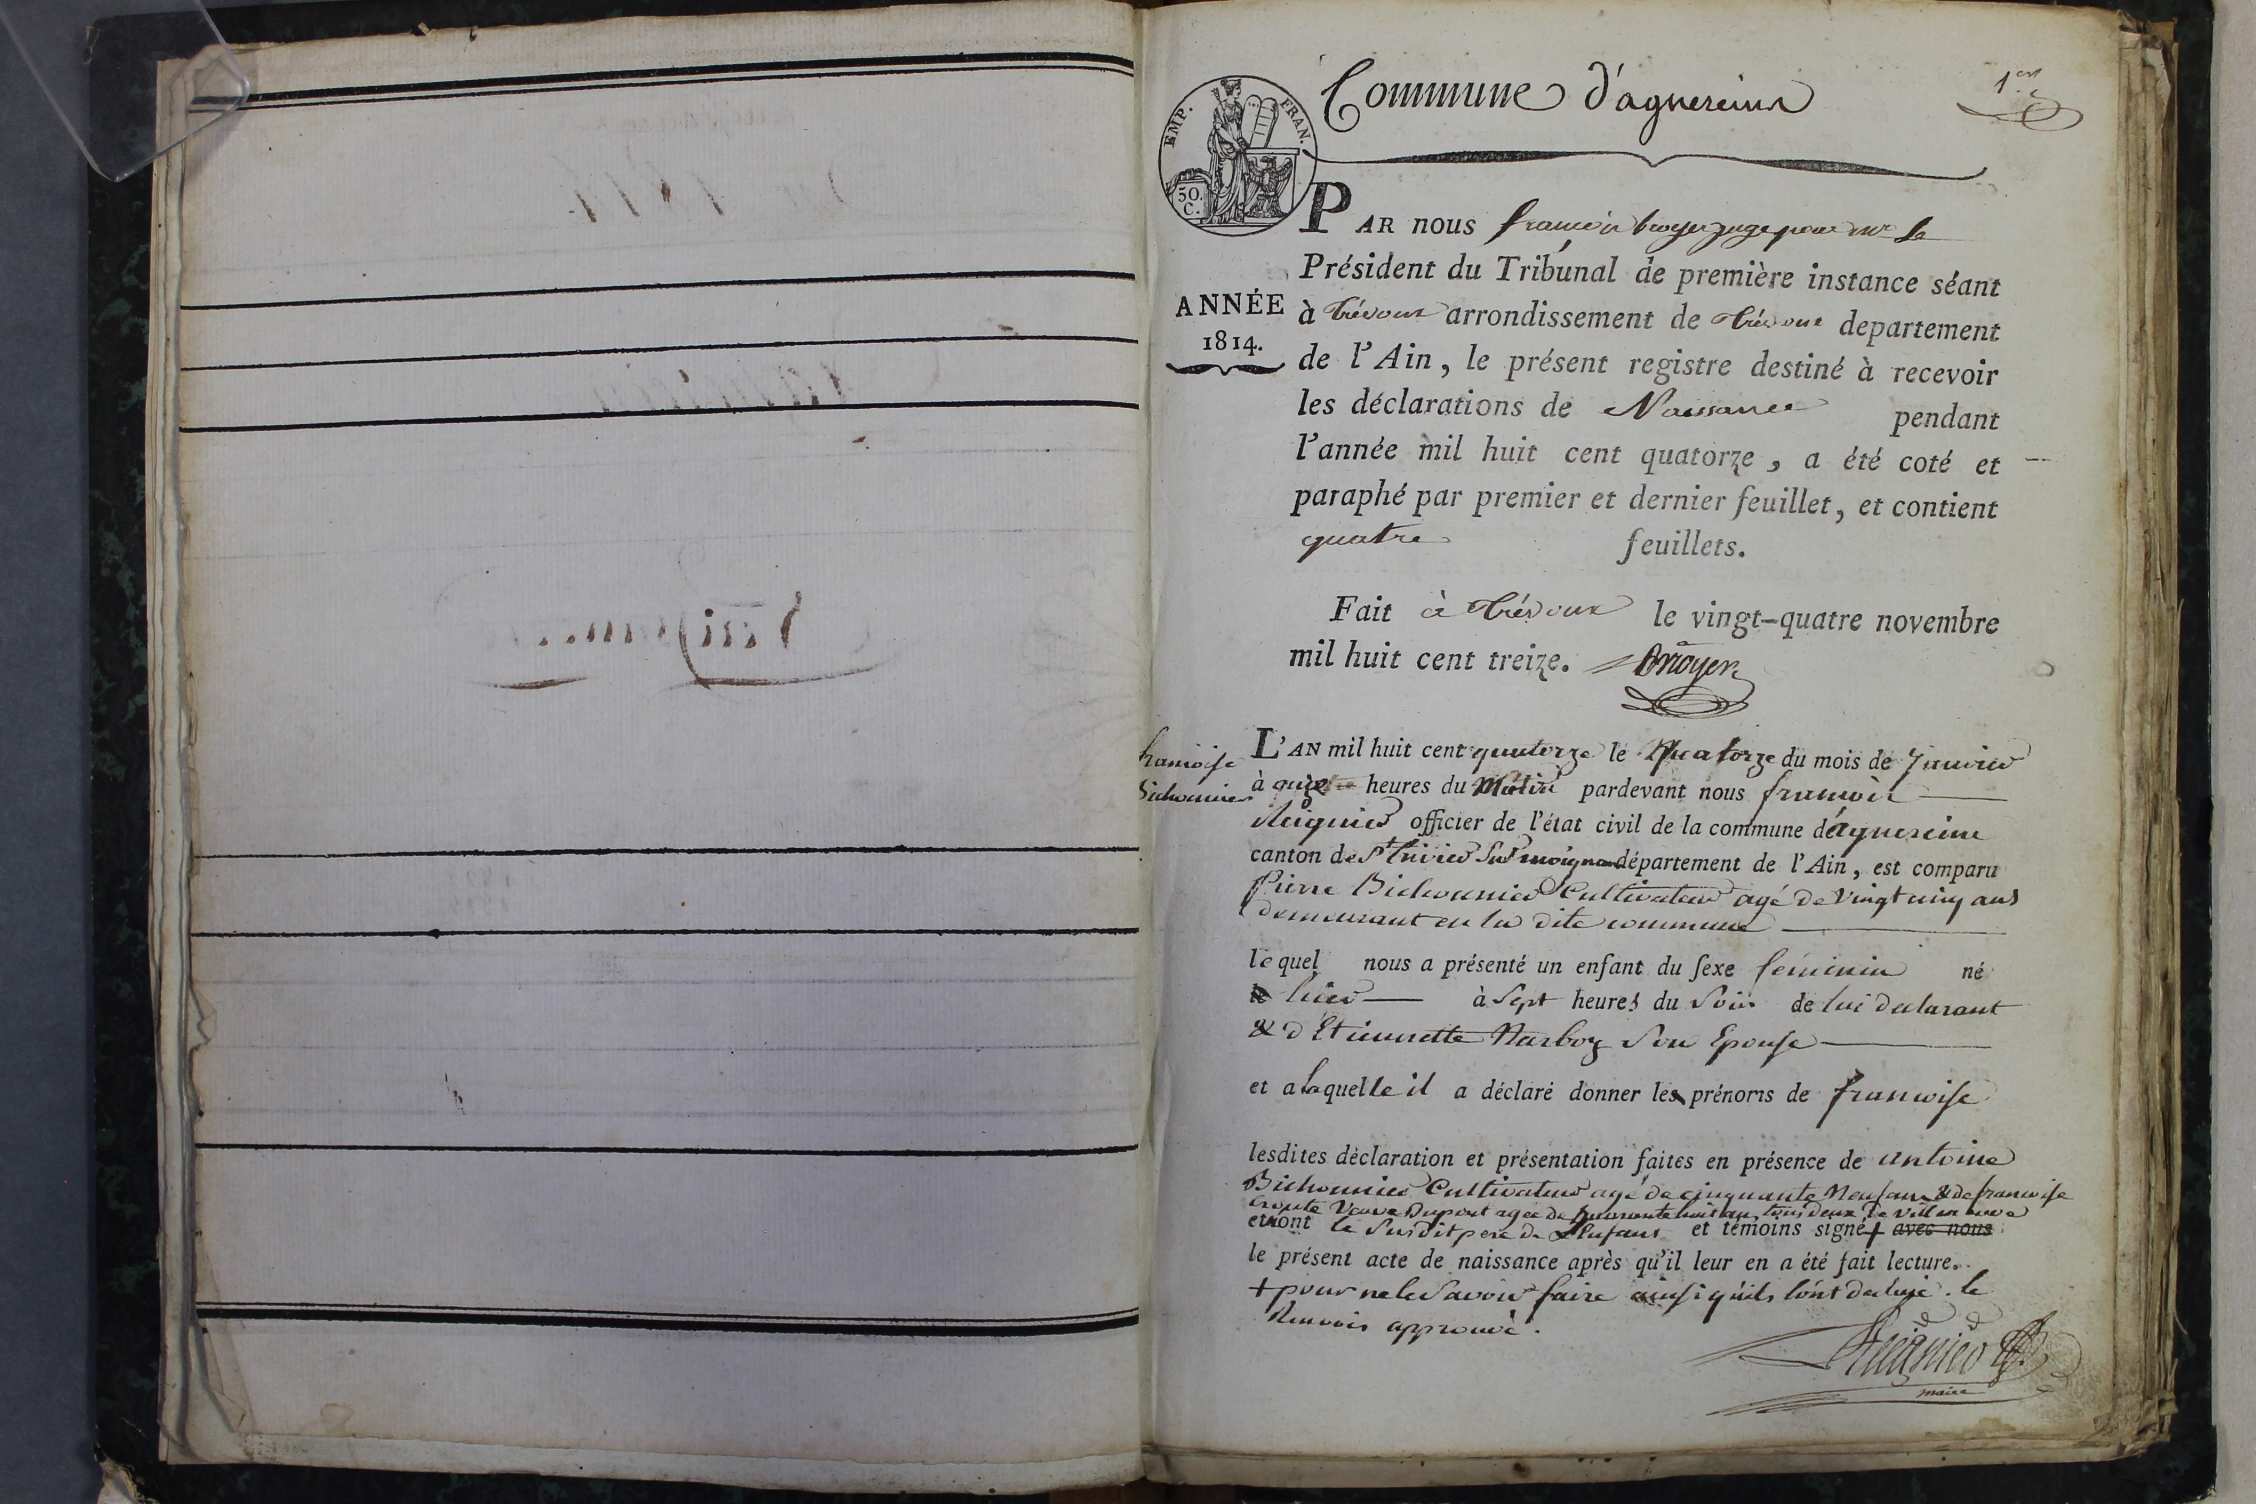 Commune d'aguereins
1er
EMP. FRAN.
50.
C.
PAR nous françois broyer juge pour mr le
Président du Tribunal de première instance séant
ANNÉE
1814.
à trévoux arrondissement de trévoux departement
de l'Ain, le présent registre destiné à recevoir
les déclarations de Naissance pendant
l'année mil huit cent quatorze, a été coté et
paraphé par premier et dernier feuillet, et contient
quatre feuillets.
Fait à trévoux le vingt-quatre novembre
mil huit cent treize. Broyer
francoise
Bichonnier
L'AN mil huit cent quatorze le Quatorze du mois de Janvier
à onze heures du Matin pardevant nous francois
officier de l'état civil de la commune d'aguereins
canton de St trivier Sur moignan département de l'Ain, est comparu
Pierre Bichonnier Cultivateur agé de vingt cinq ans
demeurant en la dite commune
le quel nous a présenté un enfant du sexe feminin né
le hier à Sept heures du Soir de lui declarant
& d'Etiennette Narboz Son Epouse
et a laquelle il a déclaré donner les prénoms de francoise
lesdites déclaration et présentation faites en présence de antoine
Bichonnier Cultivateur agé de cinquante Neuf ans & de francoise
Veuve Dupont agée de huit ans tous deux de
et n'ont le Susdit pere de L'Enfant et témoins signé + avec nous
le présent acte de naissance après qu'il leur en a été fait lecture.
+ pour ne le Savoir faire ainsi qu'ils l'ont . le
Renvois approuvé.
maire